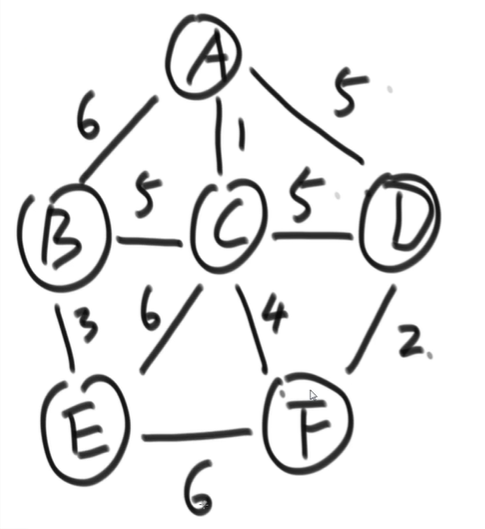 A
6 1 5
B 5 C 5 D
3 6 4 2.
E F
6